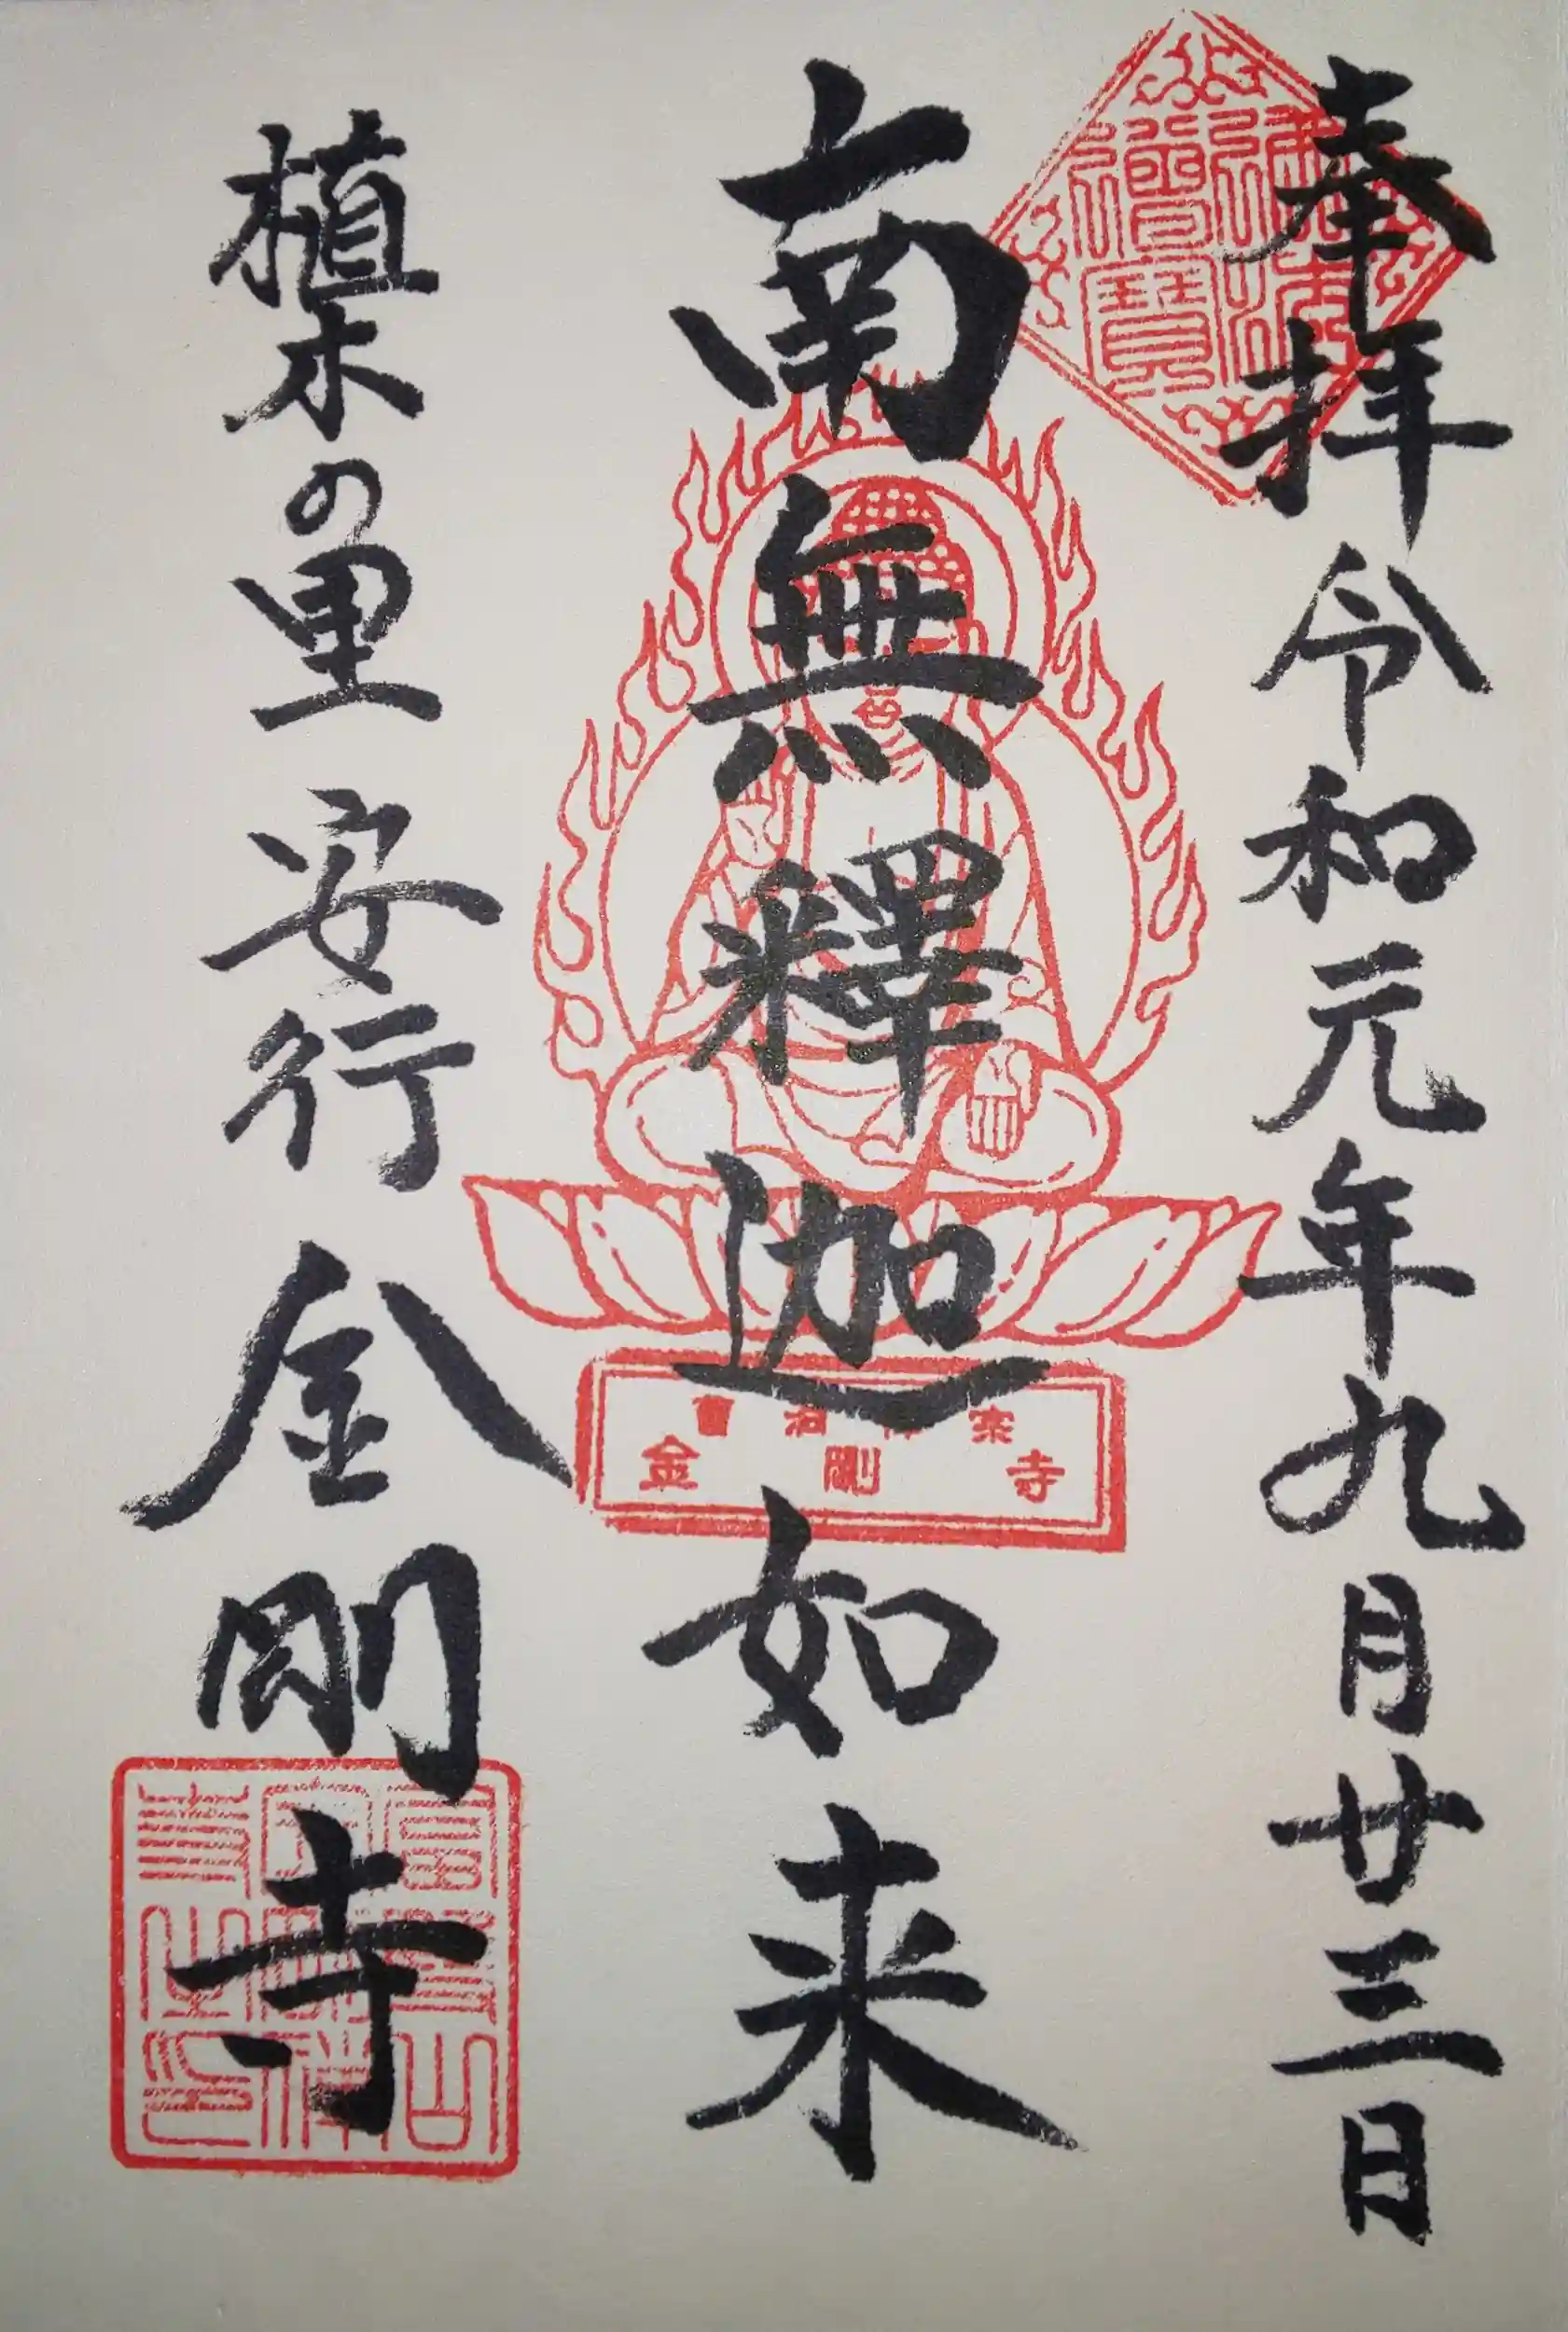 奉拝 令和元年九月廿三日
南無釋迦如来
曹洞禅宗
金剛寺
植木の里 安行 金剛寺